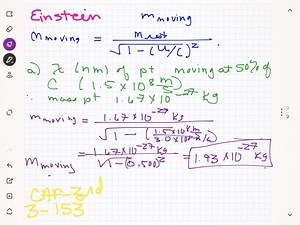 Einstein m moving
m moving = m rest / √1 - (u/c)²
a) λ (nm) of pt moving at 50% of
C (1.5 x 10⁸ m/s)
∴ mass pt 1.67 x 10⁻²⁷ kg
m moving = 1.67 x 10⁻²⁷ kg / √1 - (1.5 x 10⁸ m/s / 3.0 x 10⁸ m/s)²
m moving = 1.67 x 10⁻²⁷ kg / √1 - (0.500)² = 1.93 x 10⁻²⁷ kg
CAP-3rd
3-153